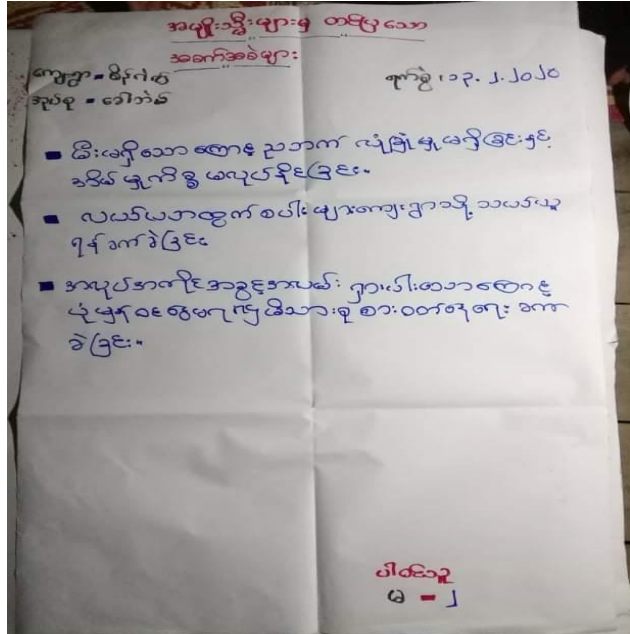 အမျိုးသ္မီးများမှ တင်ပြသော
အခက်အခဲများ
ကျေးရွာ = စိန်
ရက်စွဲ ၊ ၁၃. ၂. ၂၀၂၀
အုပ်စု =
မီးမရှိသောကြောင့် ညဘက် လုံခြုံမှုမရှိခြင်းနှင့်
အိမ်မှုကိစ္စ မလုပ်နိုင်ခြင်း။
လယ်ယာထွက် စပါးများကျေးရွာသို့ သယ်ယူ
ရန် ခက်ခဲခြင်း
အလုပ်အကိုင်အခွင့်အလမ်း ရှားပါးသောကြောင့်
ပုံမှန်ဝင်ငွေမရ၍ မိသားစု စားဝတ်နေရေး ခက်
ခဲခြင်း။
ပါဝင်သူ
မ - ၂